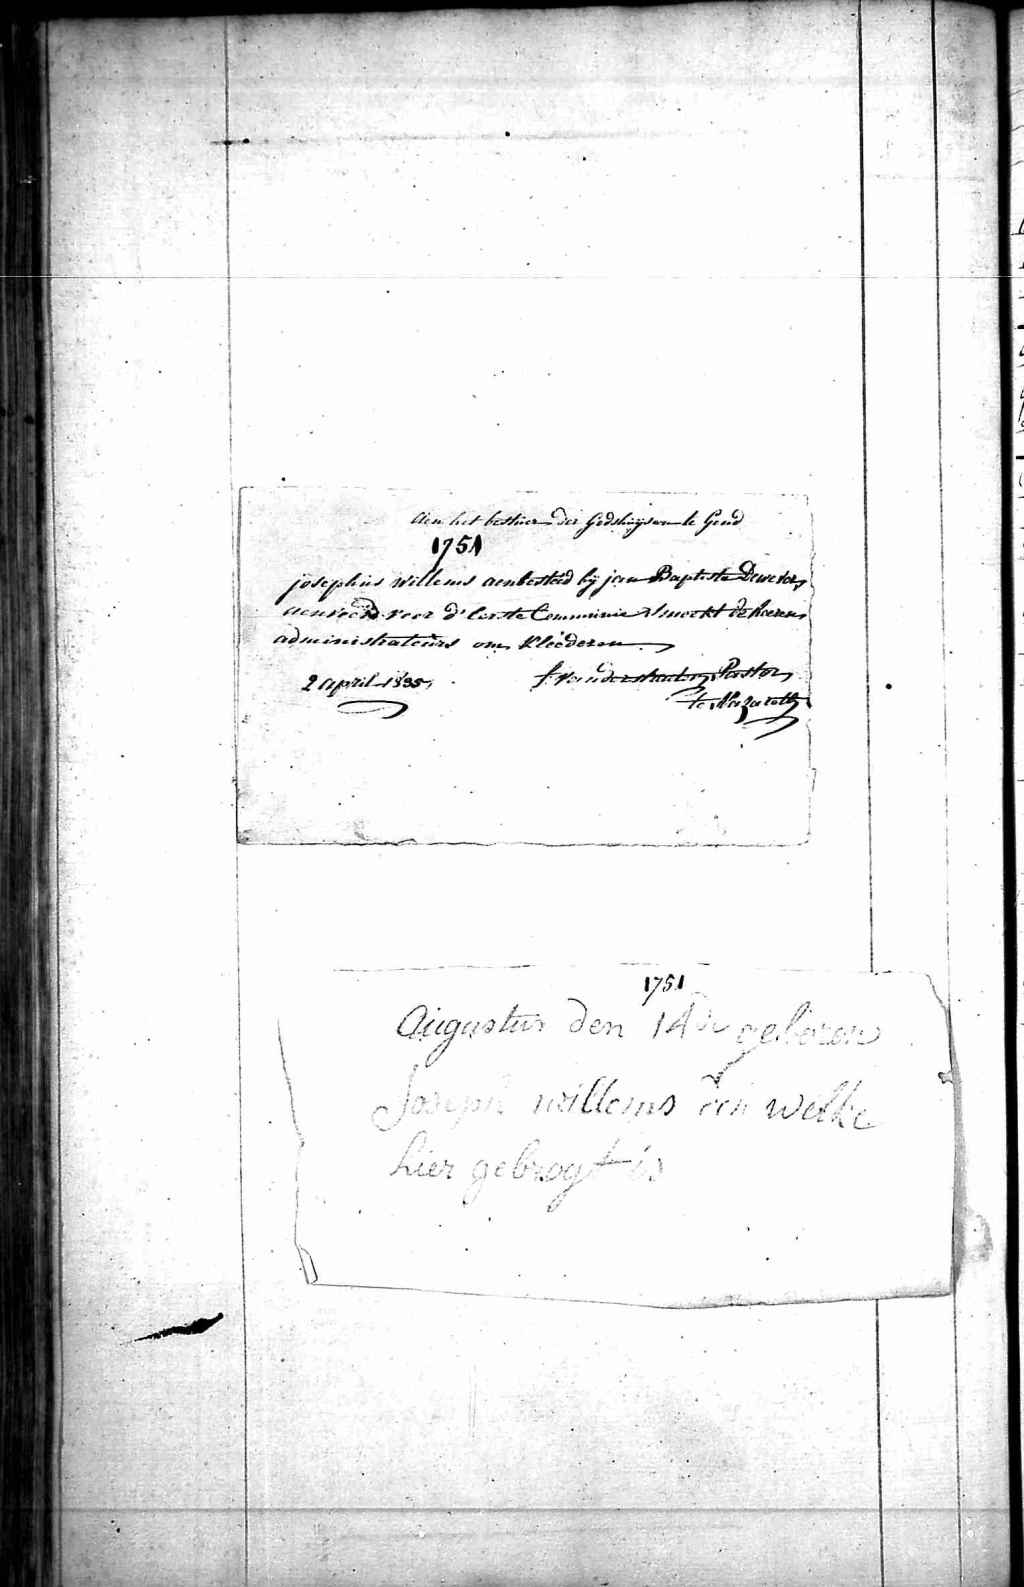 Aen het bestier der Godshuijsen te Gend
1751
josephus Willems aenbesteed bij jan Baptiste Deweter,
aenveerd voor d'Eerste Communie smeekt de heeren
administrateurs om kleederen
2 april 1835, f. Vanderstraeten, Pastor
te Nazareth
1751
Augustus den 14de geboren
Joseph willems den welke
hier gebragt is